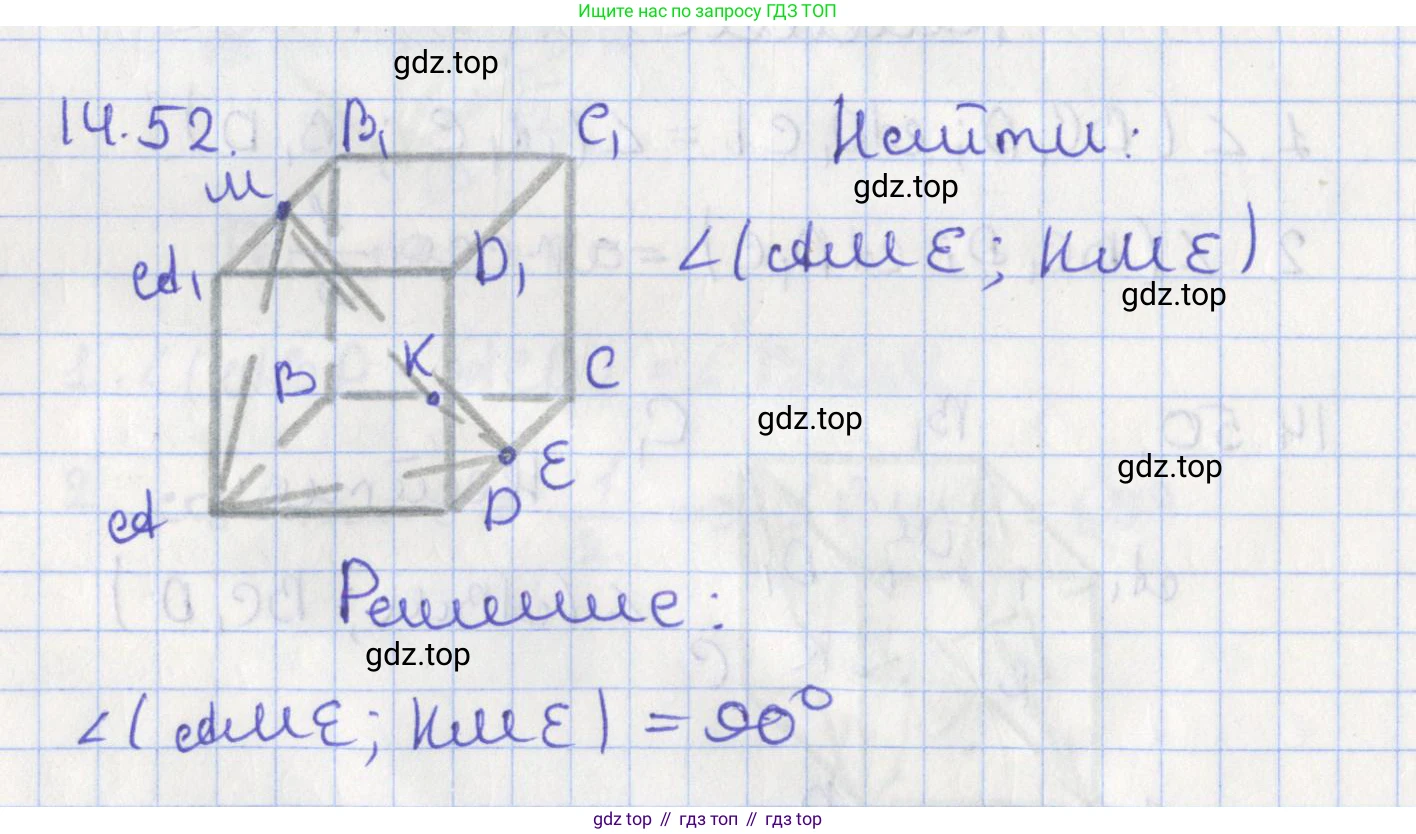 Ищите нас по запросу ГДЗ ТОП
gdz.top
14.52.
B₁
C₁
Найти:
M
gdz.top
A₁
D₁
∠(AME; KME)
gdz.top
B
K
C
gdz.top
E
gdz.top
A
D
Решение:
gdz.top
∠(AME; KME) = 90°
gdz top // гдз топ // гдз top